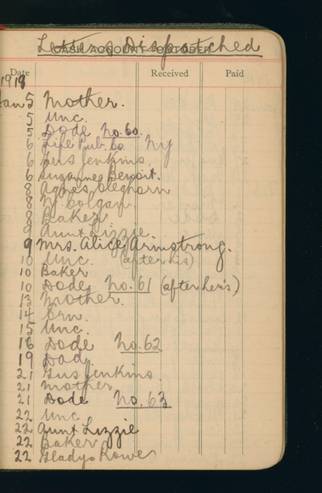 Letters Dispatched
CASH ACCOUNT—OCTOBER
Date Received Paid
1919
Jan 5 Mother.
5 Unc.
5 Dode No. 60
6 Life Pub. Co. NY
6 Gus Jenkins.
6 Suzanne Benoit.
8 Agnes Cleghorn
8 W Colgan.
8 Baker.
9 Aunt Lizzie.
9 Mrs. Alice Armstrong.
10 Unc. (after his)
10 Baker
10 Dode No. 61 (after her's)
13 Mother.
14 Ern.
15 Unc.
16 Dode No. 62
19 Dad.
21 Gus Jenkins.
21 Mother
21 Dode No. 63
22 Unc
22 Aunt Lizzie
22 Baker
22 Gladys Rowe